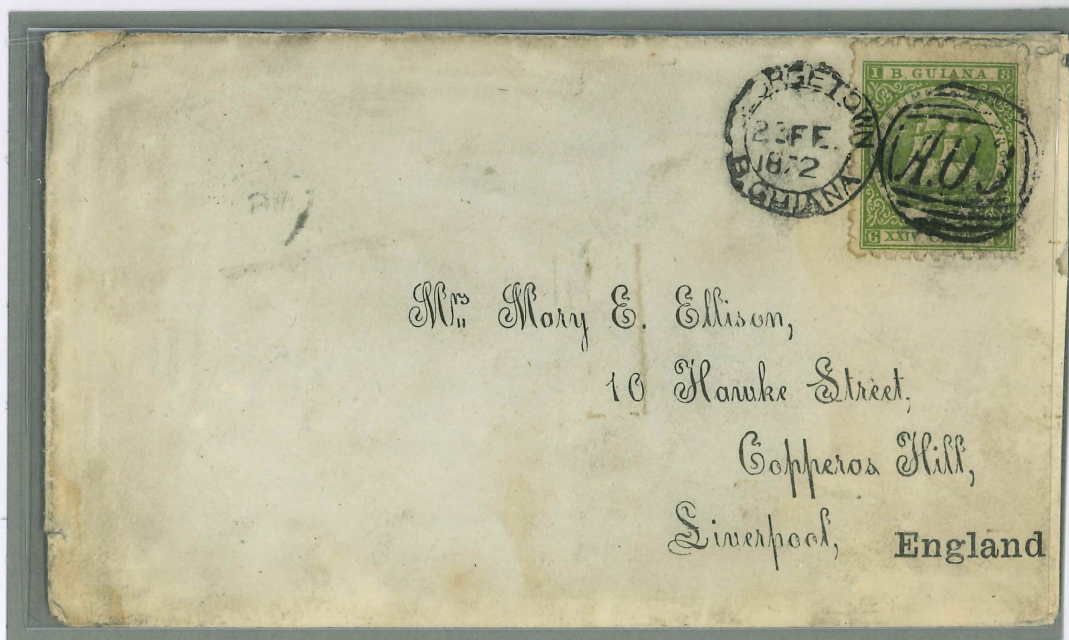 1 B. GUIANA. 8
RGETOWN
23 FE.
1872
B. GUIANA
A.03
6 XXIV
Mrs. Mary E. Ellison,
10 Hawke Street,
Copperas Hill,
Liverpool, England